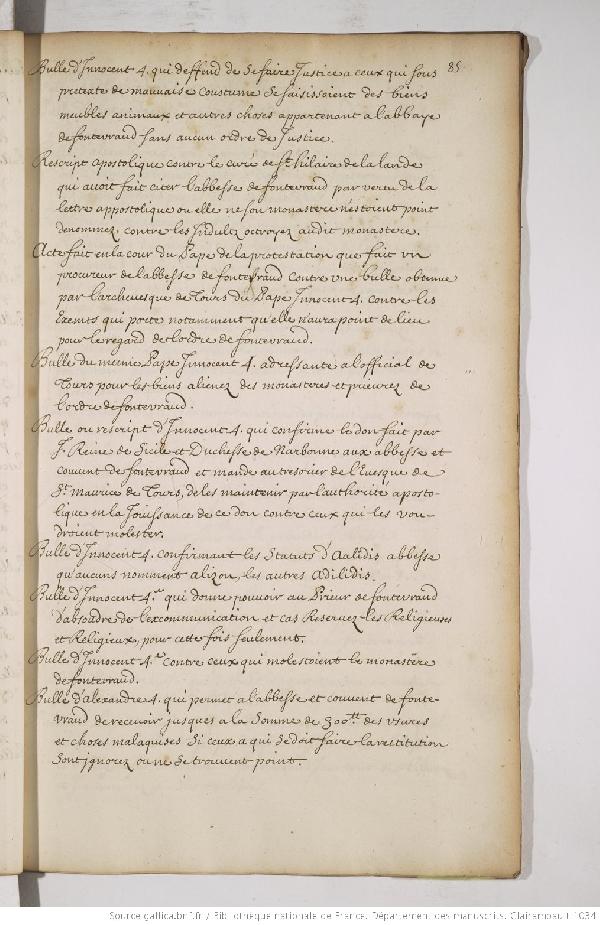 85
Bulle d'Innocent 4. qui deffend de se faire Justice a ceux qui sous
pretexte de mauvaise coustume se saisissoient des biens
meubles animaux et autres choses appartenant a l'abbaye
de fontevraud sans aucun ordre de Justice.
Rescript apostolique contre le curé de St hilaire de la lande
qui auoit fait citer l'abbesse de fontevraud par vertu de la
lettre appostolique ou elle ne son monastere n'estoient point
denommez contre les Indults octroyez audit monastere.
Acte fait en la cour du Pape de la protestation que fait vn
procureur de l'abbesse de fontevraud contre vne bulle obtenue
par l'archeuesque de Tours du Pape Innocent 4. contre les
Exempts qui porte notamment qu'elle n'aura point de lieu
pour le regard de l'ordre de fontevraud.
Bulle du mesme Pape Innocent 4. adressante a l'official de
Tours pour les biens alienez des monasteres et prieurez de
l'ordre de fontevraud.
Bulle ou rescript d'Innocent 4. qui confirme le don fait par
J. Reine de Sicile et Duchesse de Narbonne aux abbesse et
couuent de fontevraud et mande au tresorier de l'Euesque de
St. maurice de Tours, de les maintenir par l'authorité aposto-
lique en la Jouissance de ce don contre ceux qui les vou-
droient molester.
Bulle d'Innocent 4. confirmant les Statuts d'Aalidis abbesse
qu'aucuns nomment alizon, les autres Adilidis.
Bulle d'Innocent 4.e qui donne pouuoir au Prieur de fontevraud
d'absoudre de l'excommunication et cas Reseruez les Religieuses
et Religieux, pour cette fois seulement.
Bulle d'Innocent 4.e contre ceux qui molestoient le monastere
de fontevraud.
Bulle d'alexandre 4. qui permet a l'abbesse et couuent de fonte-
vraud de receuoir jusques a la Somme de 300tt des vsures
et choses mal aquises Si ceux a qui se doit faire la restitution
sont ignorez ou ne se trouuent point.
Source gallica.bnf.fr / Bibliothèque nationale de France. Département des manuscrits. Clairambault 1034